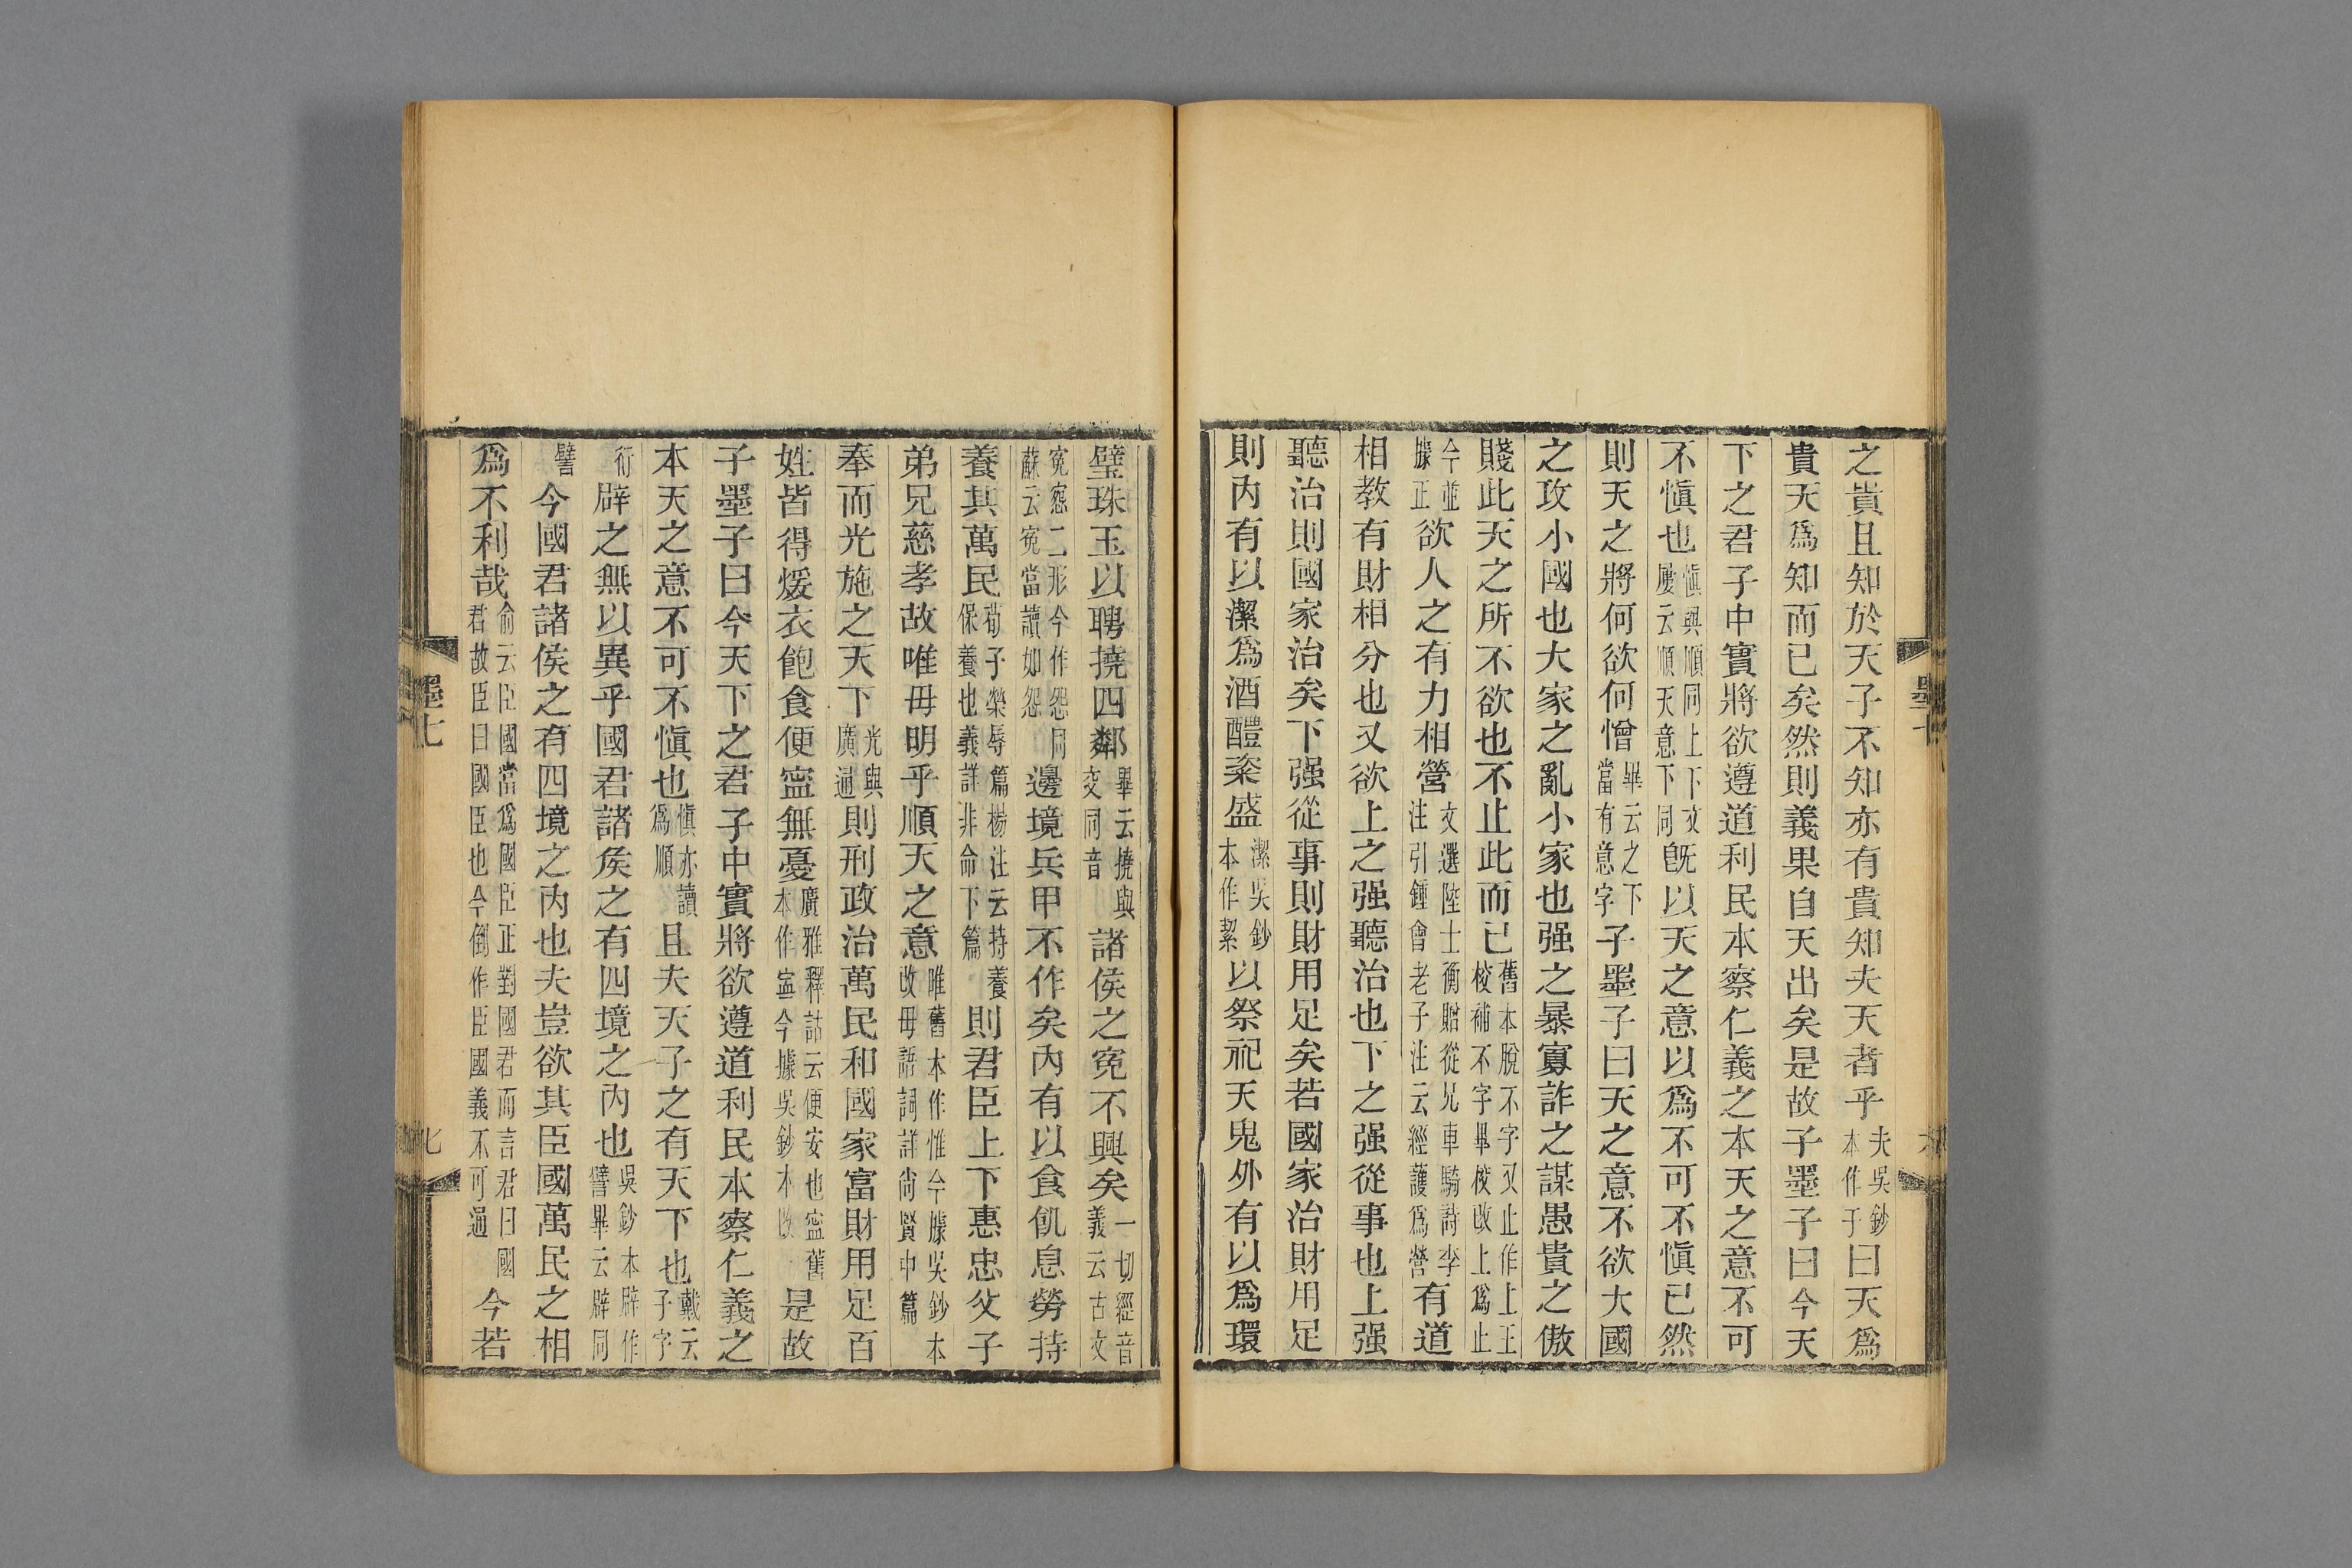 之貴且知於天子不知亦有貴知夫天者乎夫吳鈔本作于曰天爲
貴天爲知而已矣然則義果自天出矣是故子墨子曰今天
下之君子中實將欲遵道利民本察仁義之本天之意不可
不慎也慎與順同上下文屢云順天意下同旣以天之意以爲不可不慎已然
則天之將何欲何憎畢云之下當有意字子墨子曰天之意不欲大國
之攻小國也大家之亂小家也强之暴寡詐之謀愚貴之傲
賤此天之所不欲也不止此而已舊本脫不字又止作上王校補不字畢校改上爲止
今並據正欲人之有力相營文選陸士衡贈從兄車騎詩李注引鍾會老子注云經護爲營有道
相教有財相分也又欲上之强聽治也下之强從事也上强
聽治則國家治矣下强從事則財用足矣若國家治財用足
則內有以潔爲酒醴粢盛潔吳鈔本作絜以祭祀天鬼外有以爲環
璧珠玉以聘撓四鄰畢云撓與交同音諸侯之冤不興矣一切經音義云古文
冤惌二形今作怨同蘇云冤當讀如怨邊境兵甲不作矣內有以食飢息勞持
養其萬民荀子榮辱篇楊注云持養保養也義詳非命下篇則君臣上下惠忠父子
弟兄慈孝故唯毋明乎順天之意唯舊本作惟今據吳鈔本改毋語詞詳尚賢中篇
奉而光施之天下光與廣通則刑政治萬民和國家富財用足百
姓皆得煖衣飽食便寍無憂廣雅釋詁云便安也寍舊本作寍今據吳鈔本改是故
子墨子曰今天下之君子中實將欲遵道利民本察仁義之
本天之意不可不慎也慎亦讀爲順且夫天子之有天下也戴云子字
衍辟之無以異乎國君諸侯之有四境之內也吳鈔本辟作譬畢云辟同
譬今國君諸侯之有四境之內也夫豈欲其臣國萬民之相
爲不利哉俞云臣國當爲國臣正對國君而言君曰國君故臣曰國臣也今倒作臣國義不可通今若
墨七
七